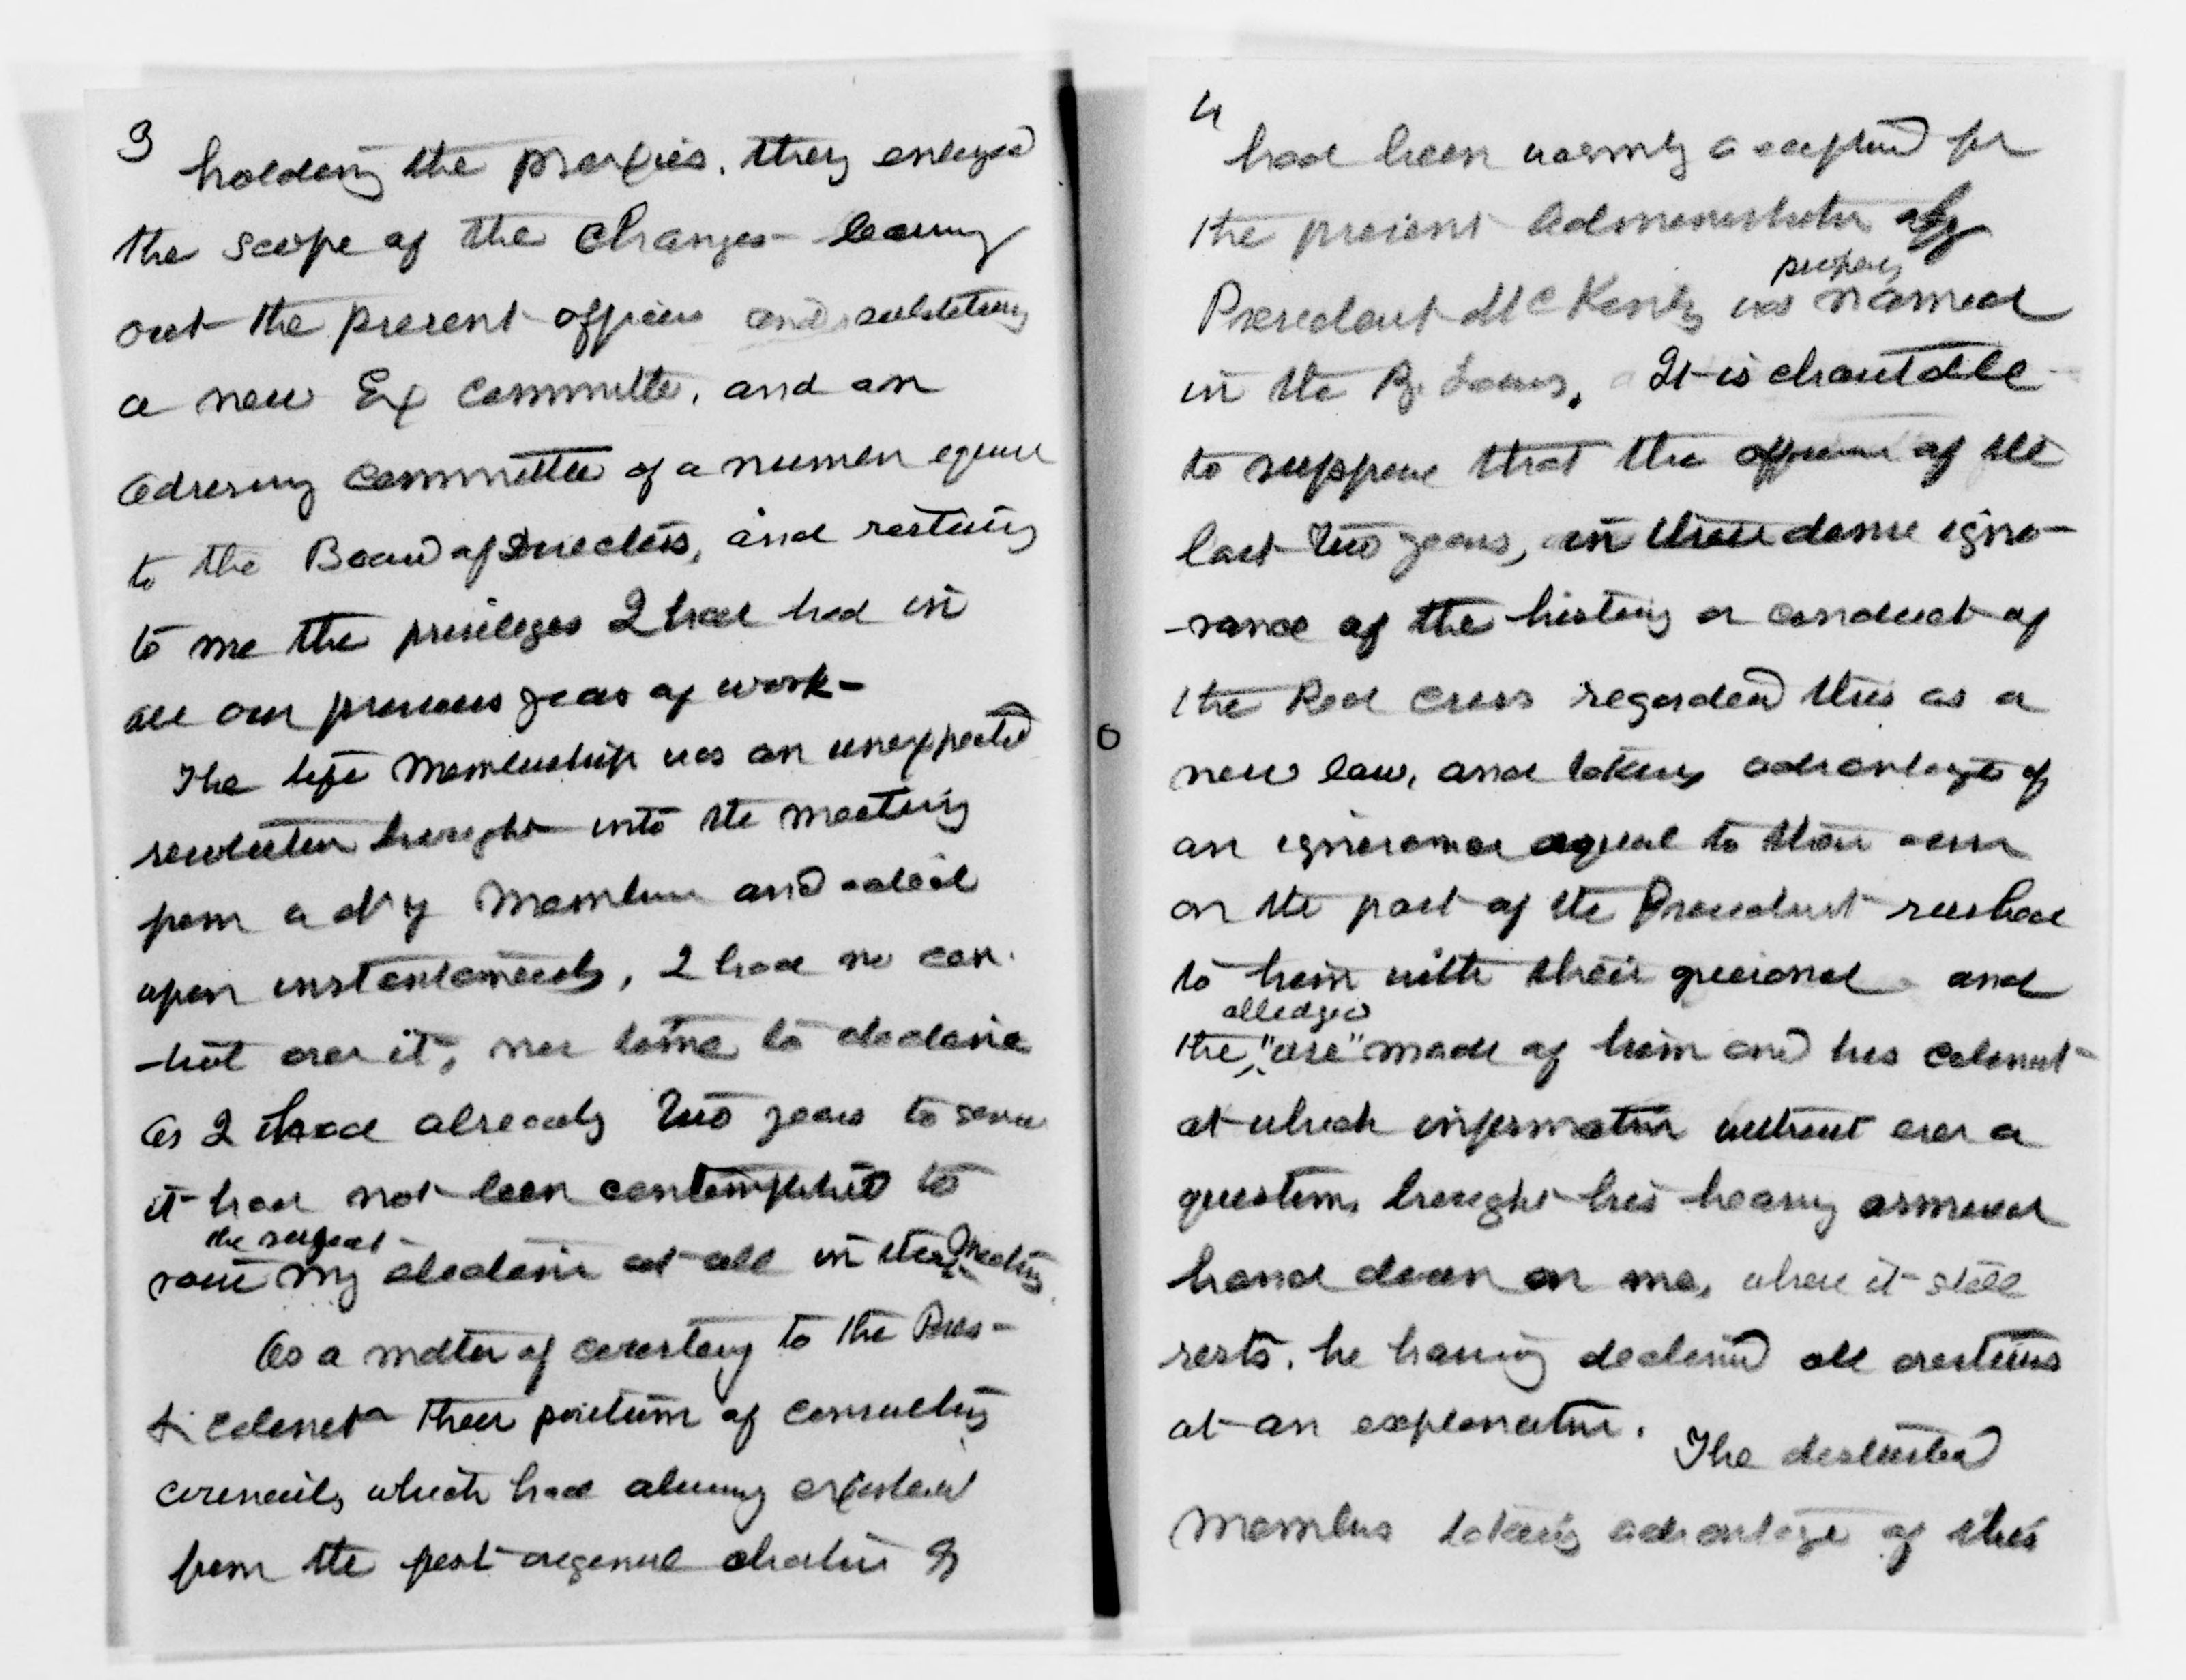 3
holding the proxies. they enlarged
the scope of the changes - leaving
out the present officers and substituting
a new Ex committe, and an
Advising committee of a number equal
to the Board of Directors, and restoring
to me the privileges I had had in
all our previous years of work -
The life membership was an unexpected
resolution brought into the meeting
from a members and acted
upon instantaneously, I had no con-
-trol over it, nor time to decline
As I had already two years to serve
it had not been contemplated to
the subject
raise my election at all in the meeting
As a matter of courtesy to the Pres-
& cabinet their position of consulting
councils, which had always existed
from the first original charter &
4
had been warmly accepted for
the present Administration by
properly
President McKinly was named
in the By Laws. It is charitable
to suppose that the officers of the
last two years, in their dense igno-
-rance of the history or conduct of
the Red Cross regarded this as a
new law, and taking advantage of
an ignorance equal to their own
on the part of the President rushed
to him with their grievance and
alledged
the "use" made of him and his cabinet
at which information without ever a
question, brought his heavy armored
hand down on me, where it still
rests. he having declined all
at an explanation. The
Members taking advantage of this